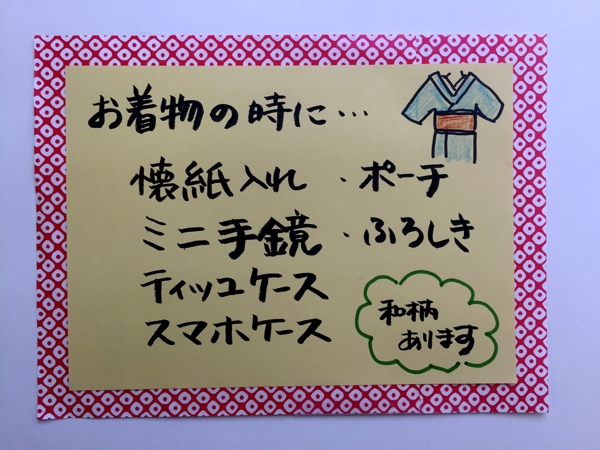 お着物の時に…
懐紙入れ ・ポーチ
ミニ手鏡 ・ふろしき
ティッユケース
スマホケース
和柄
あります